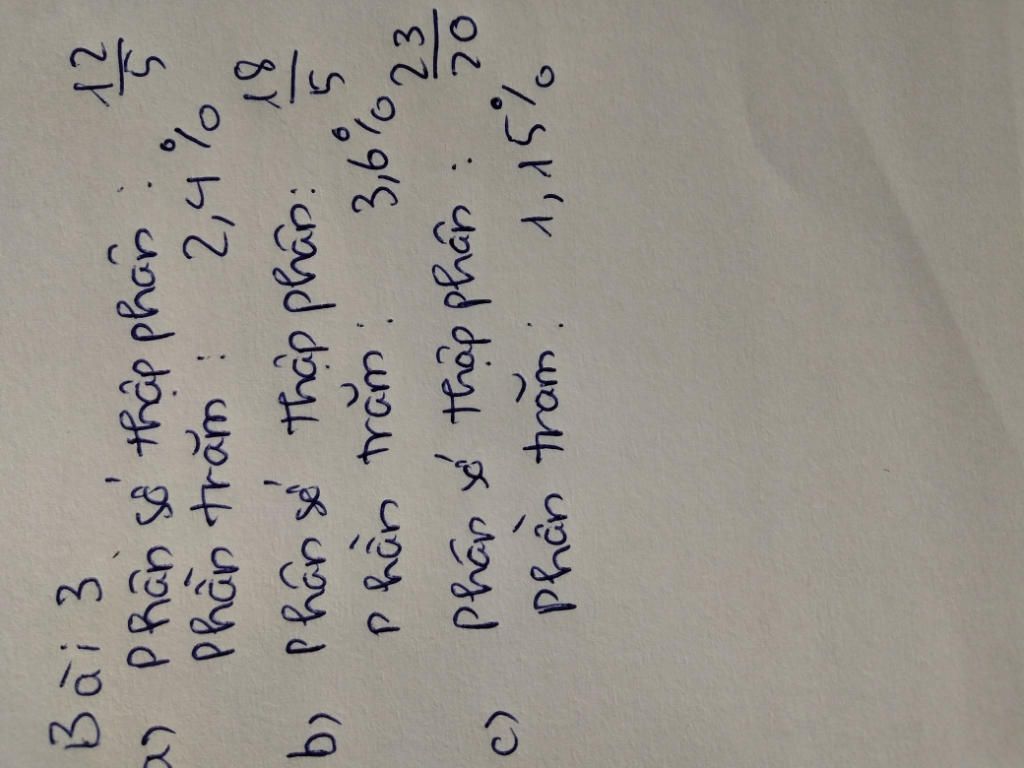 Bài 3
a) Phân số thập phân : 12/5
Phần trăm : 2,4%
b) Phân số thập phân : 18/5
Phần trăm : 3,6%
c) Phân số thập phân : 23/20
Phần trăm : 1,15%